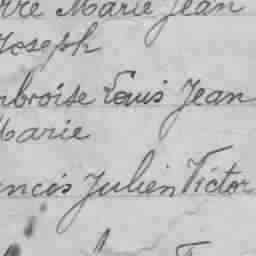 rre Marie Jean
Joseph
mbroise Louis Jean
Marie
ncis Julien Victor